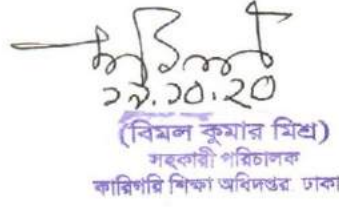 ২২.১০.২০
(বিমল কুমার মিশ্র)
সহকারী পরিচালক
কারিগরি শিক্ষা অধিদপ্তর ঢাকা